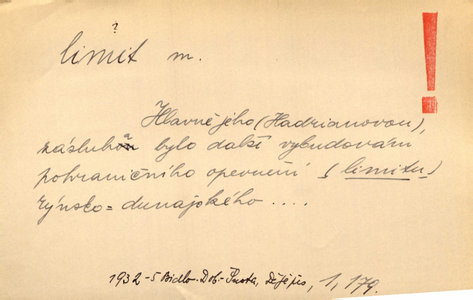 ?
limit m.
!
Hlavně jeho (Hadrianovou),
zásluhou bylo další vybudování
pohraničního opevnění (limitu)
rýnsko-dunajského ....
1932-5 Bidlo-Dob-Šusta, Dějepis, 1, 179.